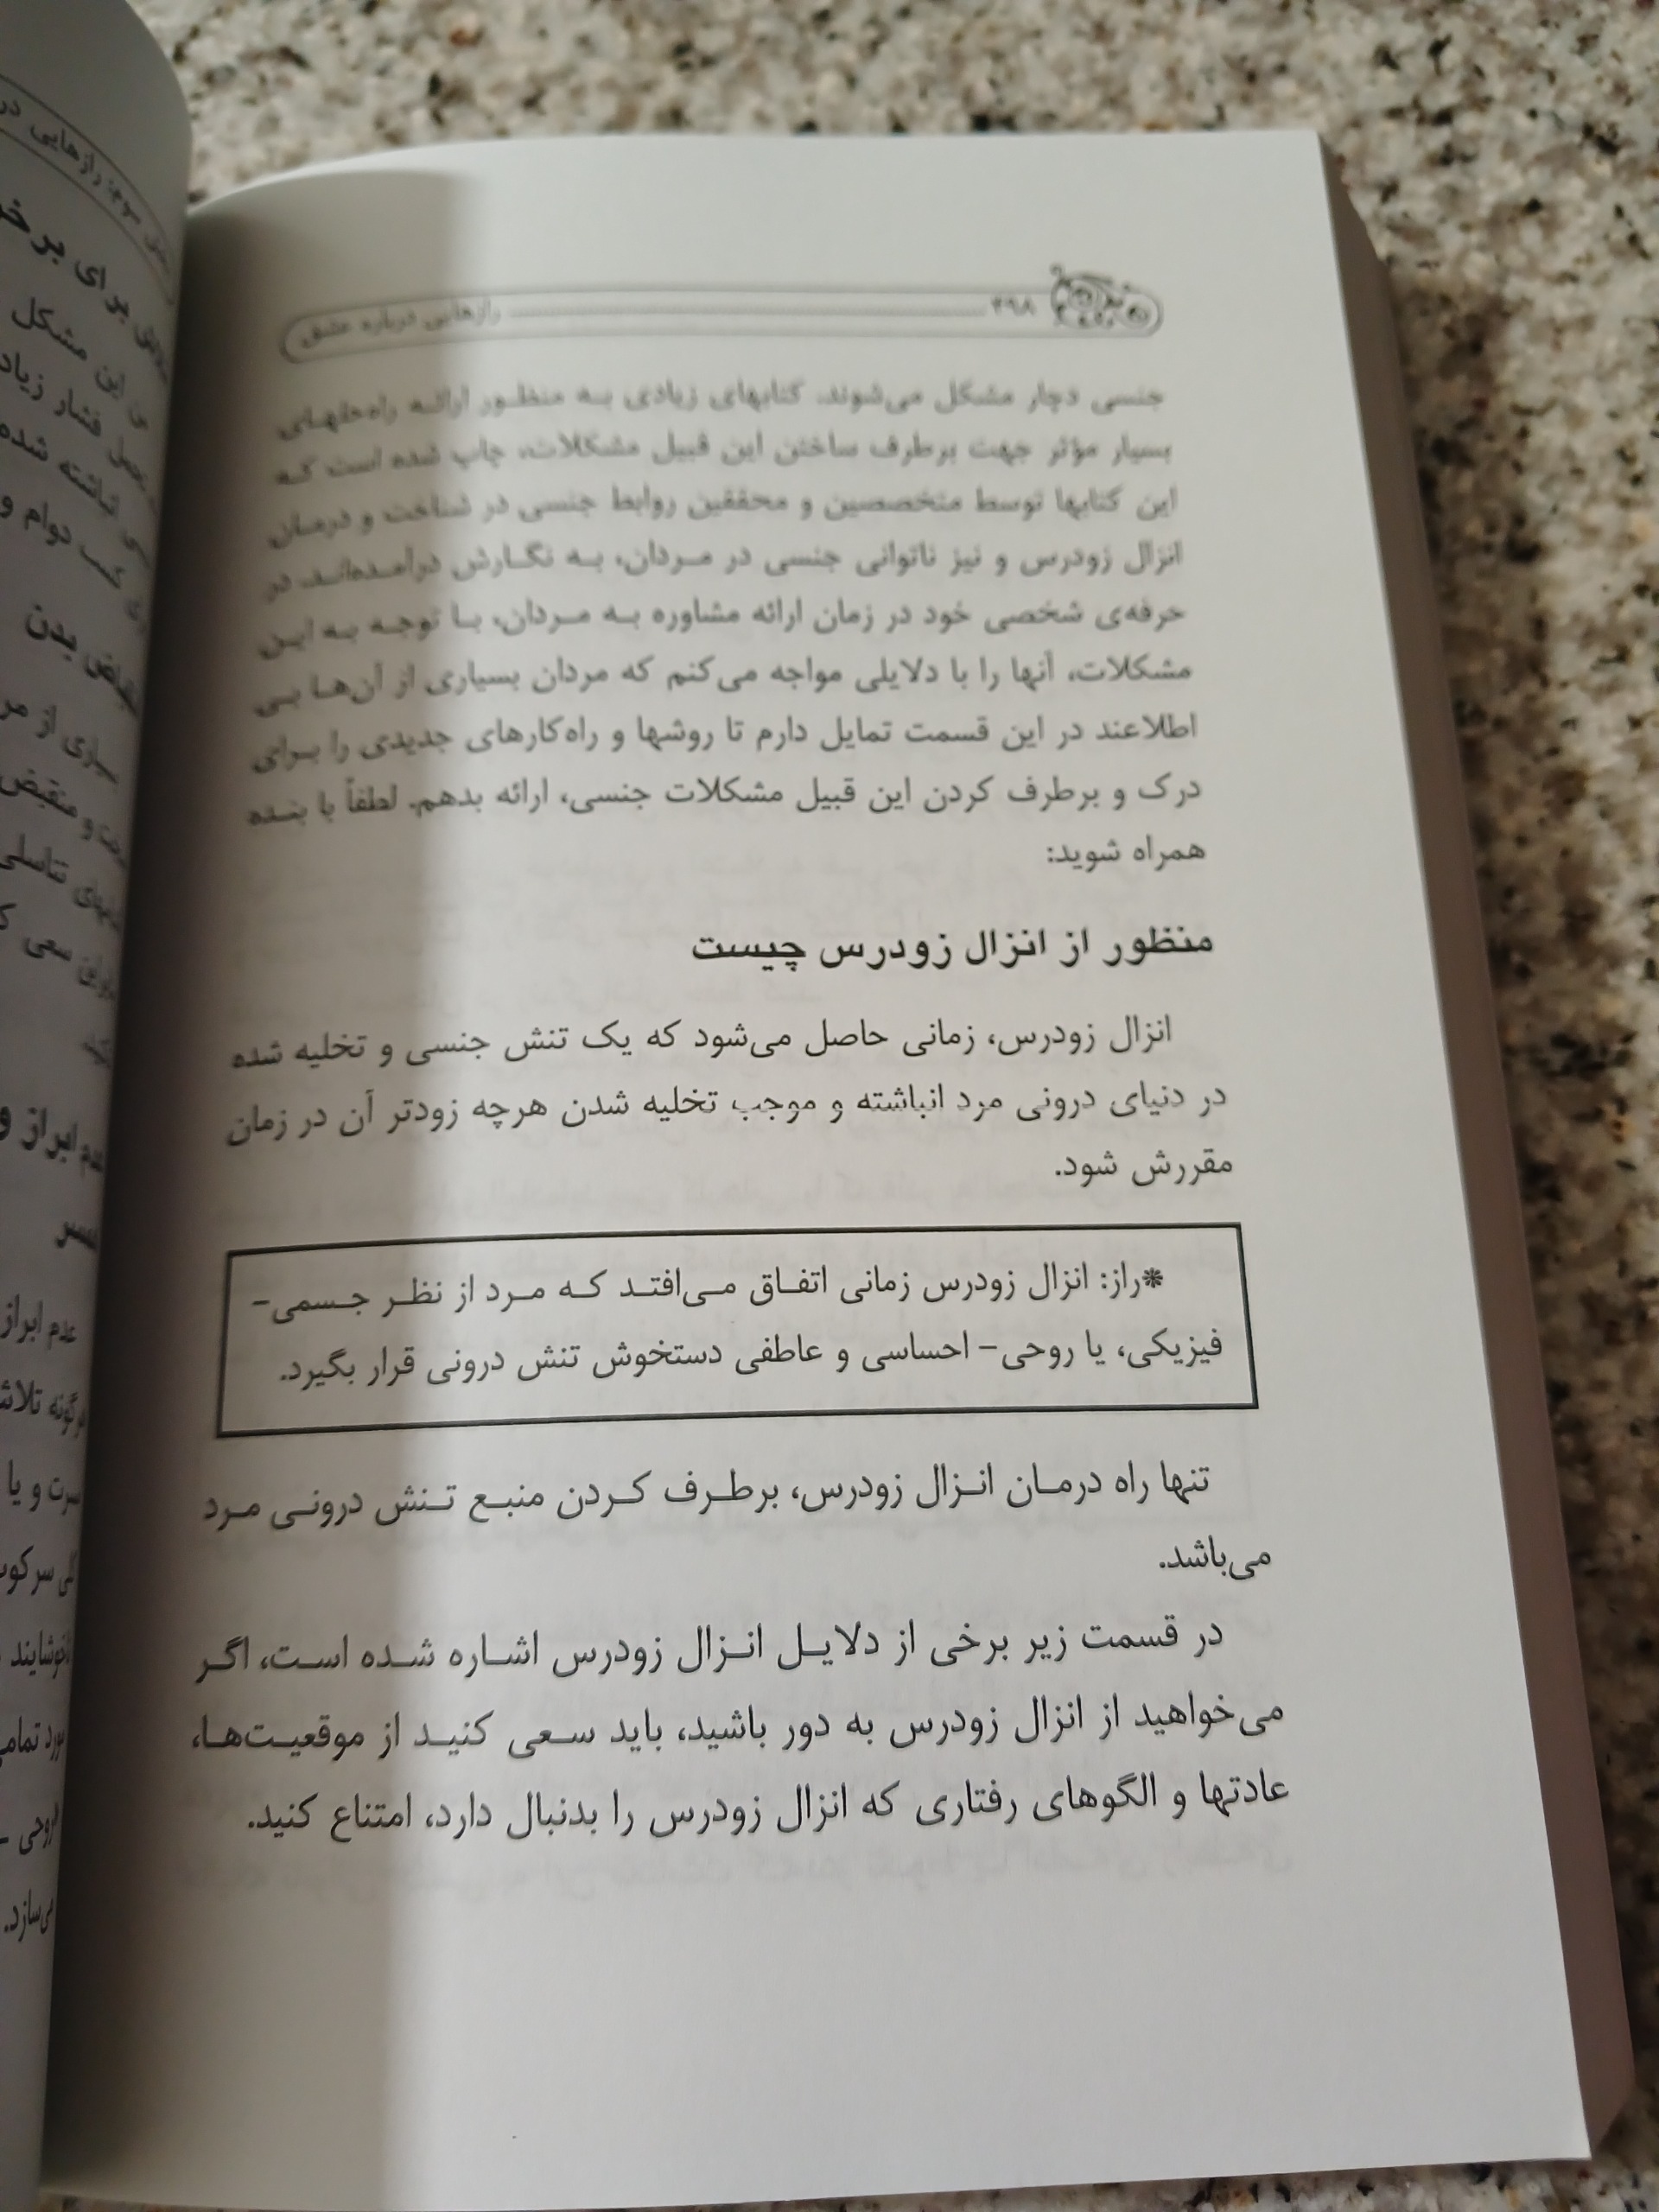 ۴۹۸ رازهایی درباره عشق
جنسی دچار مشکل می‌شوند. کتابهای زیادی به منظور ارائه راه‌حلهای
بسیار مؤثر جهت برطرف ساختن این قبیل مشکلات، چاپ شده است که
این کتابها توسط متخصصین و محققین روابط جنسی در شناخت و درمان
انزال زودرس و نیز ناتوانی جنسی در مردان، به نگارش درآمده‌اند. در
حرفه‌ی شخصی خود در زمان ارائه مشاوره به مردان، با توجه به این
مشکلات، آنها را با دلایلی مواجه می‌کنم که مردان بسیاری از آن‌ها بی
اطلاعند در این قسمت تمایل دارم تا روشها و راه‌کارهای جدیدی را برای
درک و برطرف کردن این قبیل مشکلات جنسی، ارائه بدهم. لطفاً با بنده
همراه شوید:
منظور از انزال زودرس چیست
انزال زودرس، زمانی حاصل می‌شود که یک تنش جنسی و تخلیه شده
در دنیای درونی مرد انباشته و موجب تخلیه شدن هرچه زودتر آن در زمان
مقررش شود.
*راز: انزال زودرس زمانی اتفاق می‌افتد که مرد از نظر جسمی-
فیزیکی، یا روحی- احساسی و عاطفی دستخوش تنش درونی قرار بگیرد.
تنها راه درمان انزال زودرس، برطرف کردن منبع تنش درونی مرد
می‌باشد.
در قسمت زیر برخی از دلایل انزال زودرس اشاره شده است، اگر
می‌خواهید از انزال زودرس به دور باشید، باید سعی کنید از موقعیت‌ها،
عادتها و الگوهای رفتاری که انزال زودرس را بدنبال دارد، امتناع کنید.
رازهایی
برای
این مشکل
فشار زیاد
انباشته شده
کسب دوام و
بدن
بسیاری از مر
و منقبض
تناسلی
سعی
ابراز و
عدم ابراز
تلاش
و یا
سرکوب
تمامی
روحی -